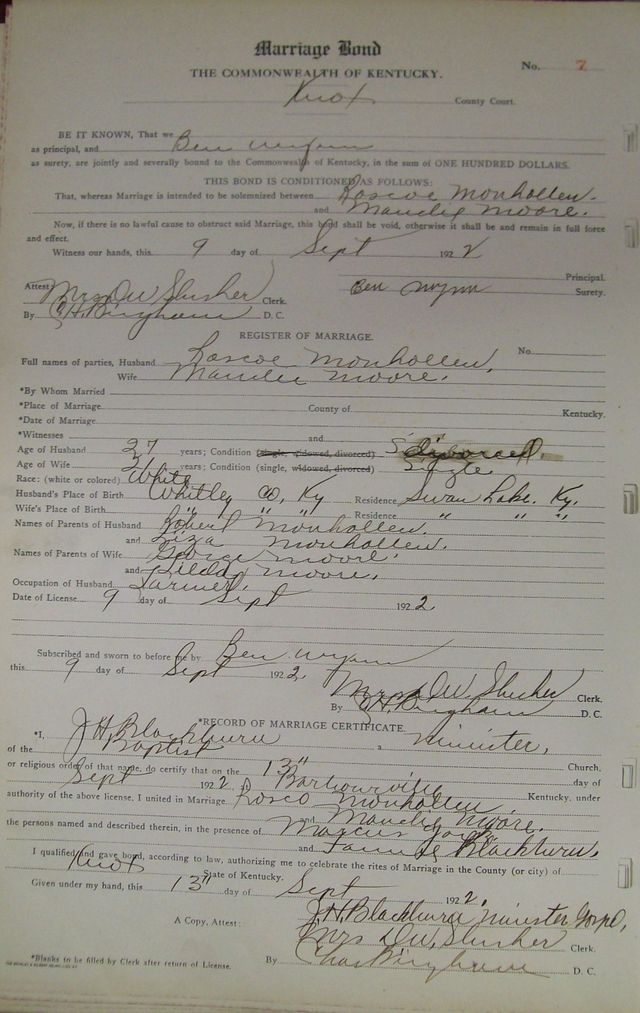 Marriage Bond
No. 7
THE COMMONWEALTH OF KENTUCKY.
Knox County Court.
BE IT KNOWN, That we Ben Wynn
as principal, and
as surety, are jointly and severally bound to the Commonwealth of Kentucky, in the sum of ONE HUNDRED DOLLARS.
THIS BOND IS CONDITIONED AS FOLLOWS:
That, whereas Marriage is intended to be solemnized between Roscoe Monhollen.
and Maudie Moore.
Now, if there is no lawful cause to obstruct said Marriage, this bond shall be void, otherwise it shall be and remain in full force
and effect.
Witness our hands, this 9 day of Sept 1922
Principal.
Attest: Mrs D W Slusher Clerk. Ben Wynn Surety.
By C H Bingham D. C.
REGISTER OF MARRIAGE.
Full names of parties, Husband Roscoe Monhollen, No.
Wife Maudie Moore.
*By Whom Married
*Place of Marriage County of Kentucky.
*Date of Marriage
*Witnesses and
Age of Husband 27 years; Condition (single, widowed, divorced) divorced.
Age of Wife 21 years; Condition (single, widowed, divorced) Single
Race: (white or colored) White
Husband's Place of Birth Whitley Co. Ky Residence Swan Lake. Ky.
Wife's Place of Birth " " " Residence " " "
Names of Parents of Husband Robert Monhollen.
and Liza Monhollen.
Names of Parents of Wife George Moore.
and Moore.
Occupation of Husband Farmer.
Date of License 9 day of Sept 1922.
Subscribed and sworn to before me by Ben Wynn
this 9 day of Sept 1922.
Mrs D W Slusher Clerk.
By C H Bingham D. C.
*RECORD OF MARRIAGE CERTIFICATE.
*I, J H Blackburn a Minister,
of the Baptist Church,
or religious order of that name, do certify that on the 13" day of
Sept 1922, at Barbourville Kentucky, under
authority of the above license, I united in Marriage Rosco Monhollen
and Maudie Moore.
the persons named and described therein, in the presence of Marcus
and Blackburn.
I qualified and gave bond, according to law, authorizing me to celebrate the rites of Marriage in the County (or city) of
Knox State of Kentucky.
Given under my hand, this 13" day of Sept 1922.
J.H. Blackburn Minister Gospel,
A Copy, Attest: Mrs D W Slusher Clerk.
*Blanks to be filled by Clerk after return of License. By Chas Bingham D. C.